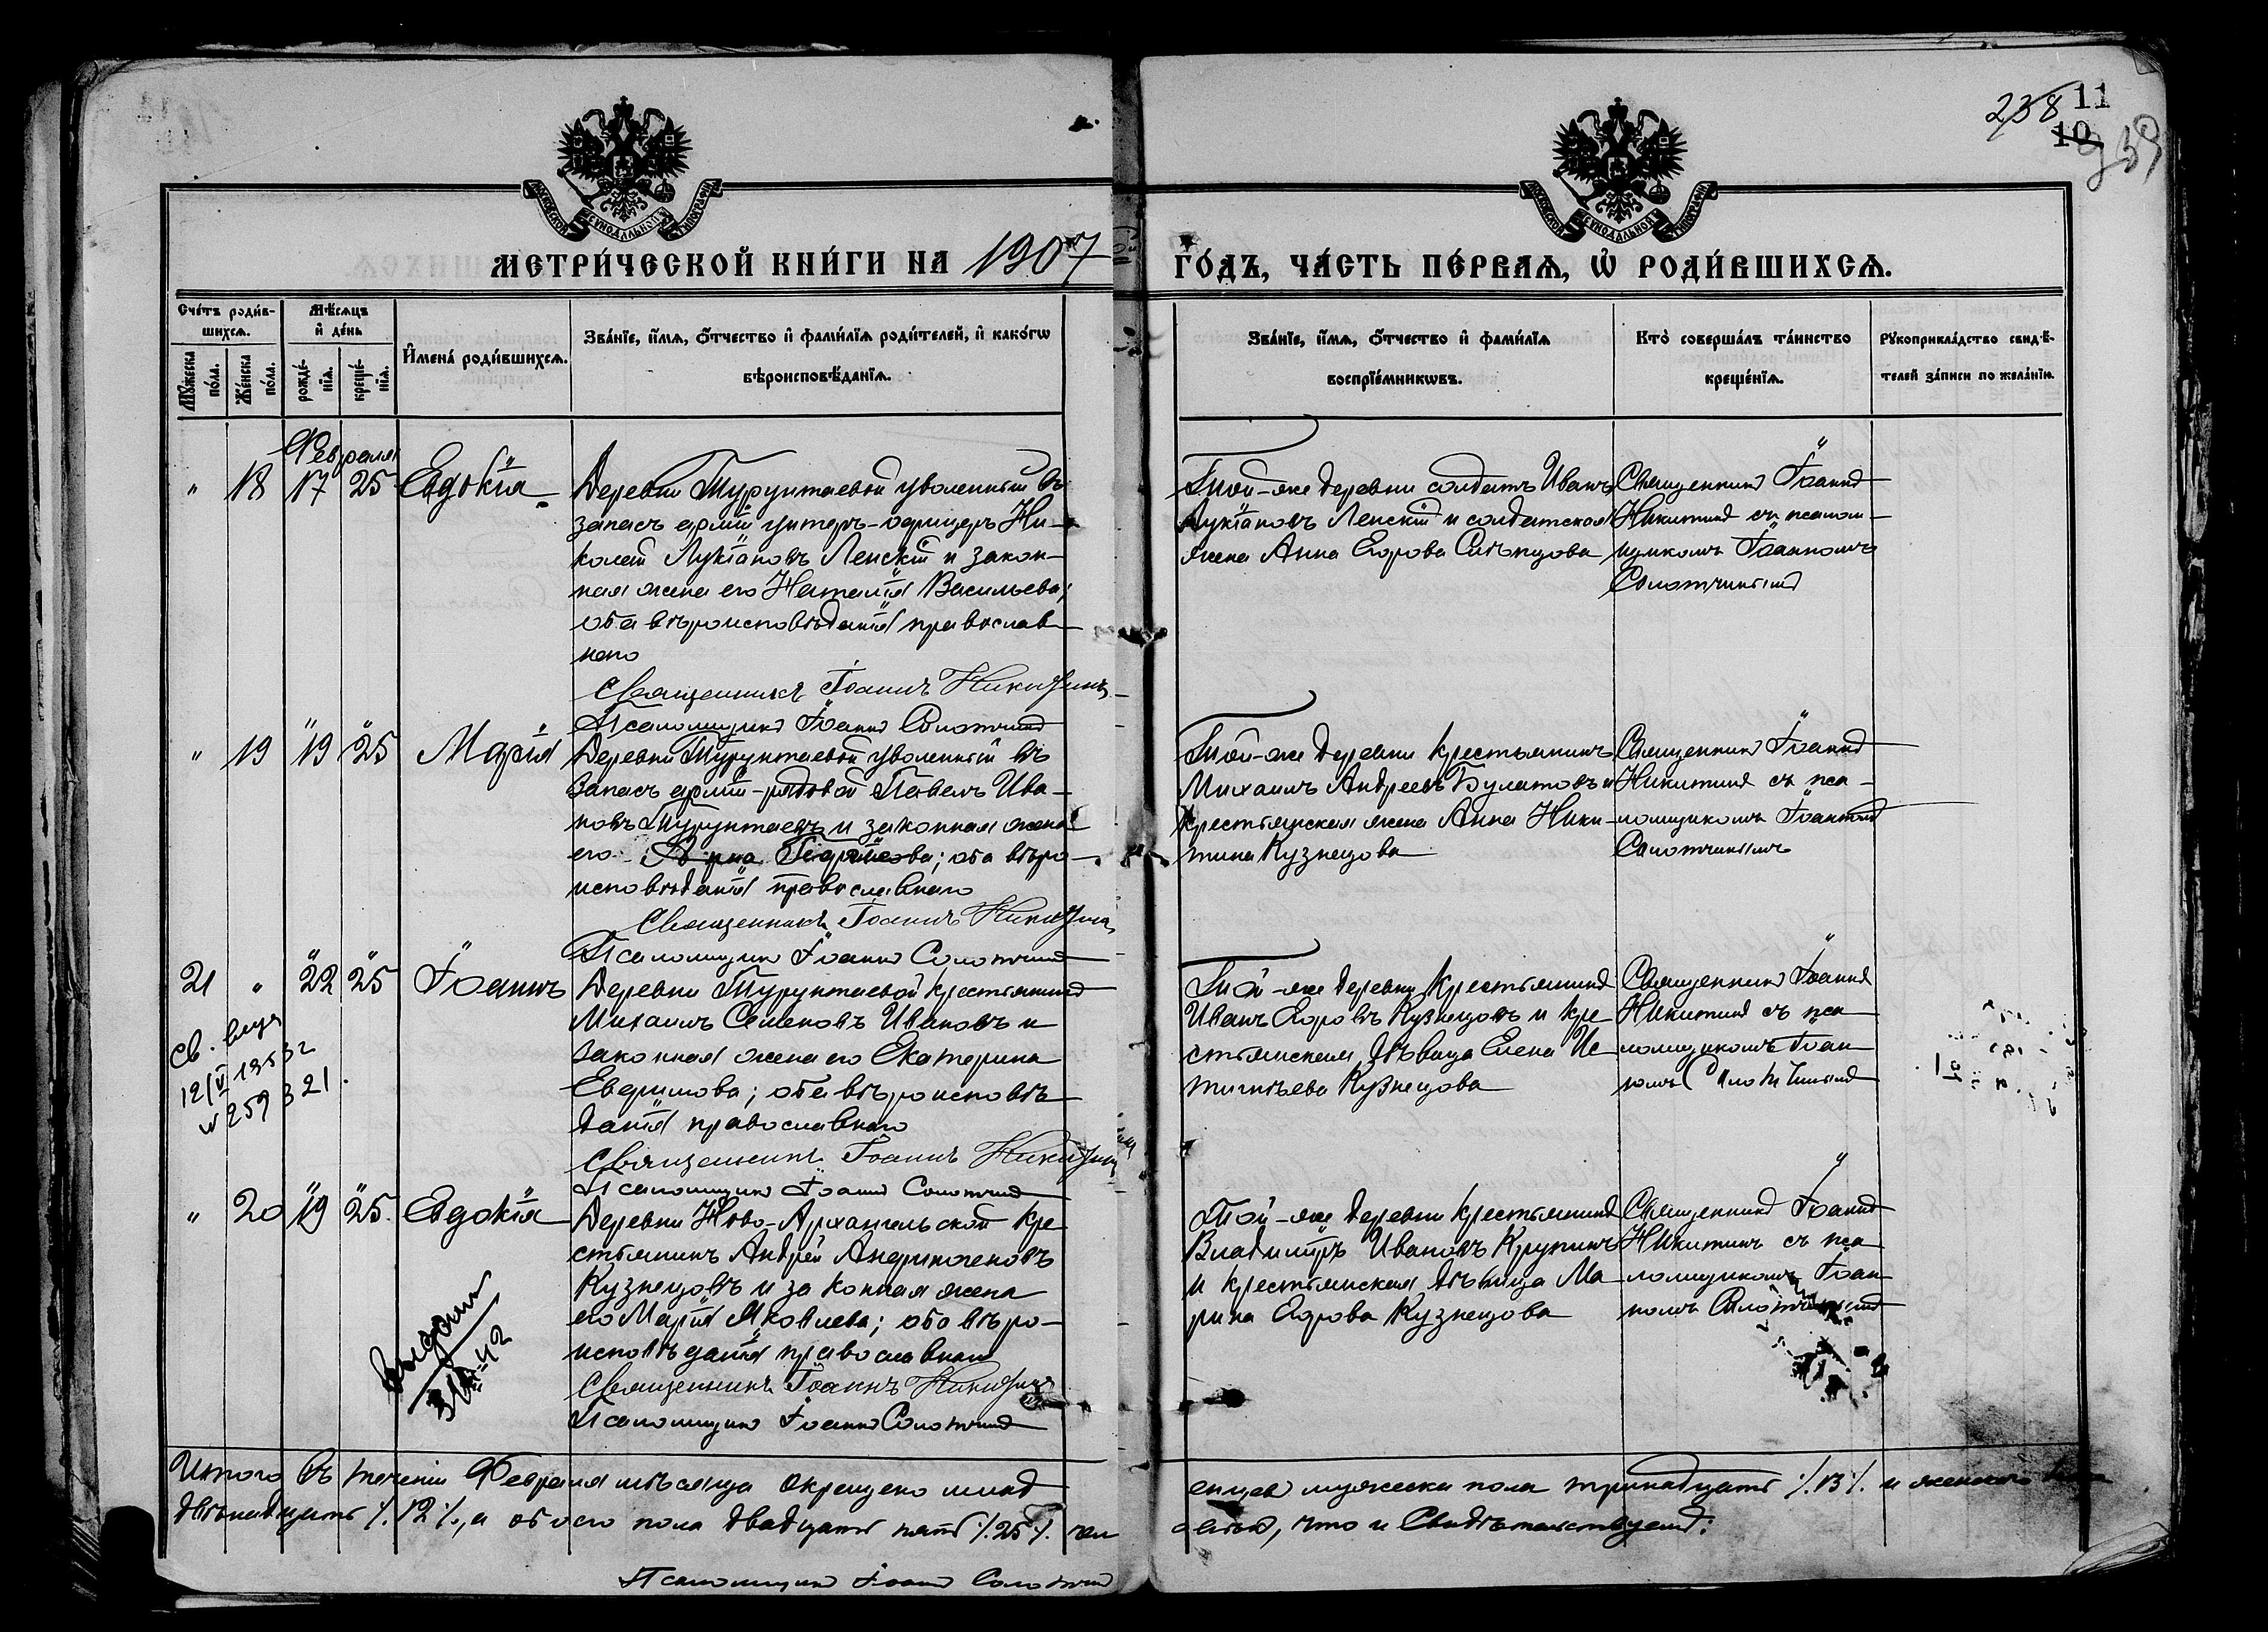 238 11
10
239
МОСКОВСКОЙ СѴНОДАЛЬНОЙ ТИПОГРАФІИ
МОСКОВСКОЙ СѴНОДАЛЬНОЙ ТИПОГРАФІИ
МЕТРИ́ЧЕСКОЙ КНИ́ГИ НА 1907
ГО́ДЪ, ЧА́СТЬ ПЕ́РВАѦ, Ѡ҆ РОДИ́ВШИХСѦ.
Сче́тъ роди́в-
шихсѧ.
Мѣ́сѧцъ
и҆ де́нь
Мꙋ́жеска
по́ла.
Же́нска
по́ла.
рожде́-
нїѧ.
креще́-
нїѧ.
И҆мена̀ роди́вшихсѧ.
Зва́нїе, и҆́мѧ, ѻ҆́тчество и҆ фами́лїѧ роди́телей, и҆ како́гѡ
вѣроисповѣ́данїѧ.
Зва́нїе, и҆́мѧ, ѻ҆́тчество и҆ фами́лїѧ
воспрїе́мникѡвъ.
Кто̀ соверша́лъ та́инство
креще́нїѧ.
Рꙋкоприкла́дство свидѣ́-
телей за́писи по жела́нїю.
Февраля
" 18 17 25 Евдокія
Деревни Турунтаевой уволенный въ
запасъ арміи унтеръ-офицеръ Ни-
колай Лукіановъ Ленскій и закон-
ная жена его Наталія Васильева;
оба вѣроисповѣданія православ-
наго
Священникъ Іоаннъ Никитинъ
Псаломщикъ Іоаннъ Солотчинъ
Той-же деревни солдатъ Иванъ
Лукіановъ Ленскій и солдатская
жена Анна Егорова Слѣпцова
Священникъ Іоаннъ
Никитинъ съ псалом-
щикомъ Іоанномъ
Солотчинымъ
" 19 19 25 Марія
Деревни Турунтаевой уволенный въ
запасъ арміи-рядовой Павелъ Ива-
новъ Турунтаевъ и законная жена
его ; оба вѣро-
исповѣданія православнаго
Священникъ Іоаннъ Никитинъ
Псаломщикъ Іоаннъ Солотчинъ
Той-же деревни крестьянинъ
Михаилъ Андреевъ Булатовъ и
крестьянская жена Анна Ники-
тина Кузнецова
Священникъ Іоаннъ
Никитинъ съ пса-
ломщикомъ Іоанномъ
Солотчинымъ
21 " 22 25 Іоаннъ
Деревни Турунтаевой крестьянинъ
Михаилъ Семеновъ Ивановъ и
законная жена его Екатерина
Евфимова; оба вѣроисповѣ-
данія православнаго
Священникъ Іоаннъ Никитинъ
Псаломщикъ Іоаннъ Солотчинъ
Той-же деревни крестьянинъ
Иванъ Егоровъ Кузнецовъ и кре-
стьянская дѣвица Елена Иг-
натьева Кузнецова
Священникъ Іоаннъ
Никитинъ съ пса-
ломщикомъ Іоан-
номъ Солотчинымъ
св.
12/V 1953г
№ 259321
" 20 19 25 Евдокія
Деревни Ново-Архангельской кре-
стьянинъ Андрей Андрониковъ
Кузнецовъ и законная жена
его Марія Яковлева; оба вѣро-
исповѣданія православнаго
Священникъ Іоаннъ Никитинъ
Псаломщикъ Іоаннъ Солотчинъ
Той-же деревни крестьянинъ
Владиміръ Ивановъ Крупинъ
и крестьянская дѣвица Ма-
рина Егорова Кузнецова
Священникъ Іоаннъ
Никитинъ съ пса-
ломщикомъ Іоан-
номъ Солотчинымъ
Итого въ теченіи Февраля мѣсяца окрещено млад
енцевъ мужеска пола тринадцать ./.13./. и женскаго
двѣнадцать ./.12./., а обоего пола двадцать пять ./.25./. чел
овѣкъ, что и свидѣтельствуемъ:
Псаломщикъ Іоаннъ Солотчинъ